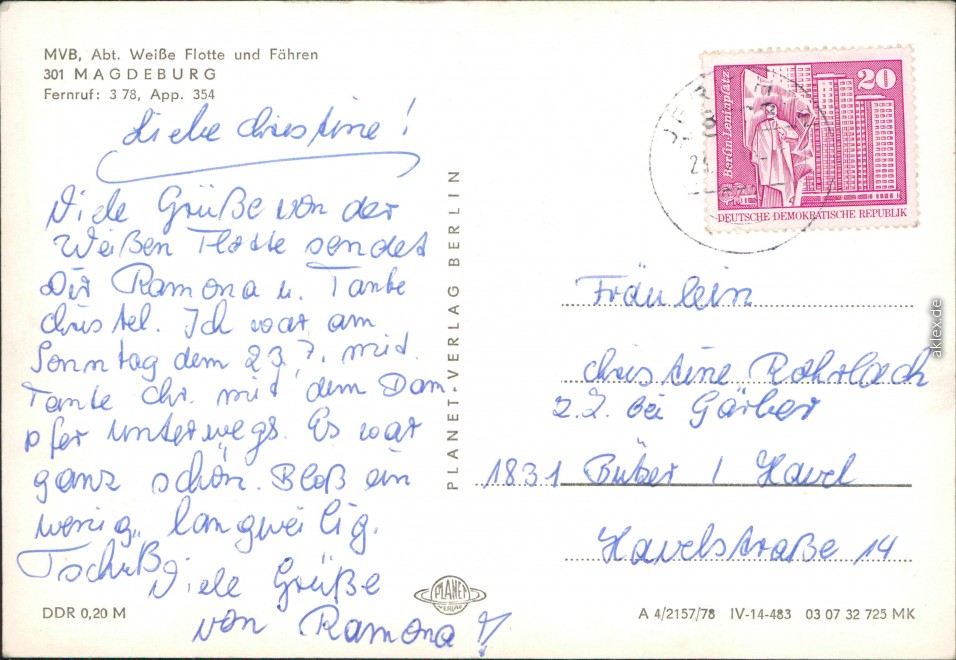 MVB, Abt. Weiße Flotte und Fähren
301 MAGDEBURG
Fernruf: 3 78, App. 354
Liebe Christine!
Viele Grüße von der
Weißen Flotte sendet
Dir Ramona u. Tante
Christel. Ich war am
Sonntag dem 23.7. mit
Tante Chr. mit dem Dam-
pfer unterwegs. Es war
ganz schön. Bloß ein
wenig langweilig.
Tschüß
Viele Grüße
von Ramona!
DDR 0,20 M
PLANET-VERLAG BERLIN
PLANET
VERLAG
Berlin-Leninplatz
20
DEUTSCHE DEMOKRATISCHE REPUBLIK
Fräulein
Christine Rohrlack
z.Z. bei Gärber
1831 Bützer / Havel
Havelstraße 14
A 4/2157/78 IV-14-483 03 07 32 725 MK
aklex.de